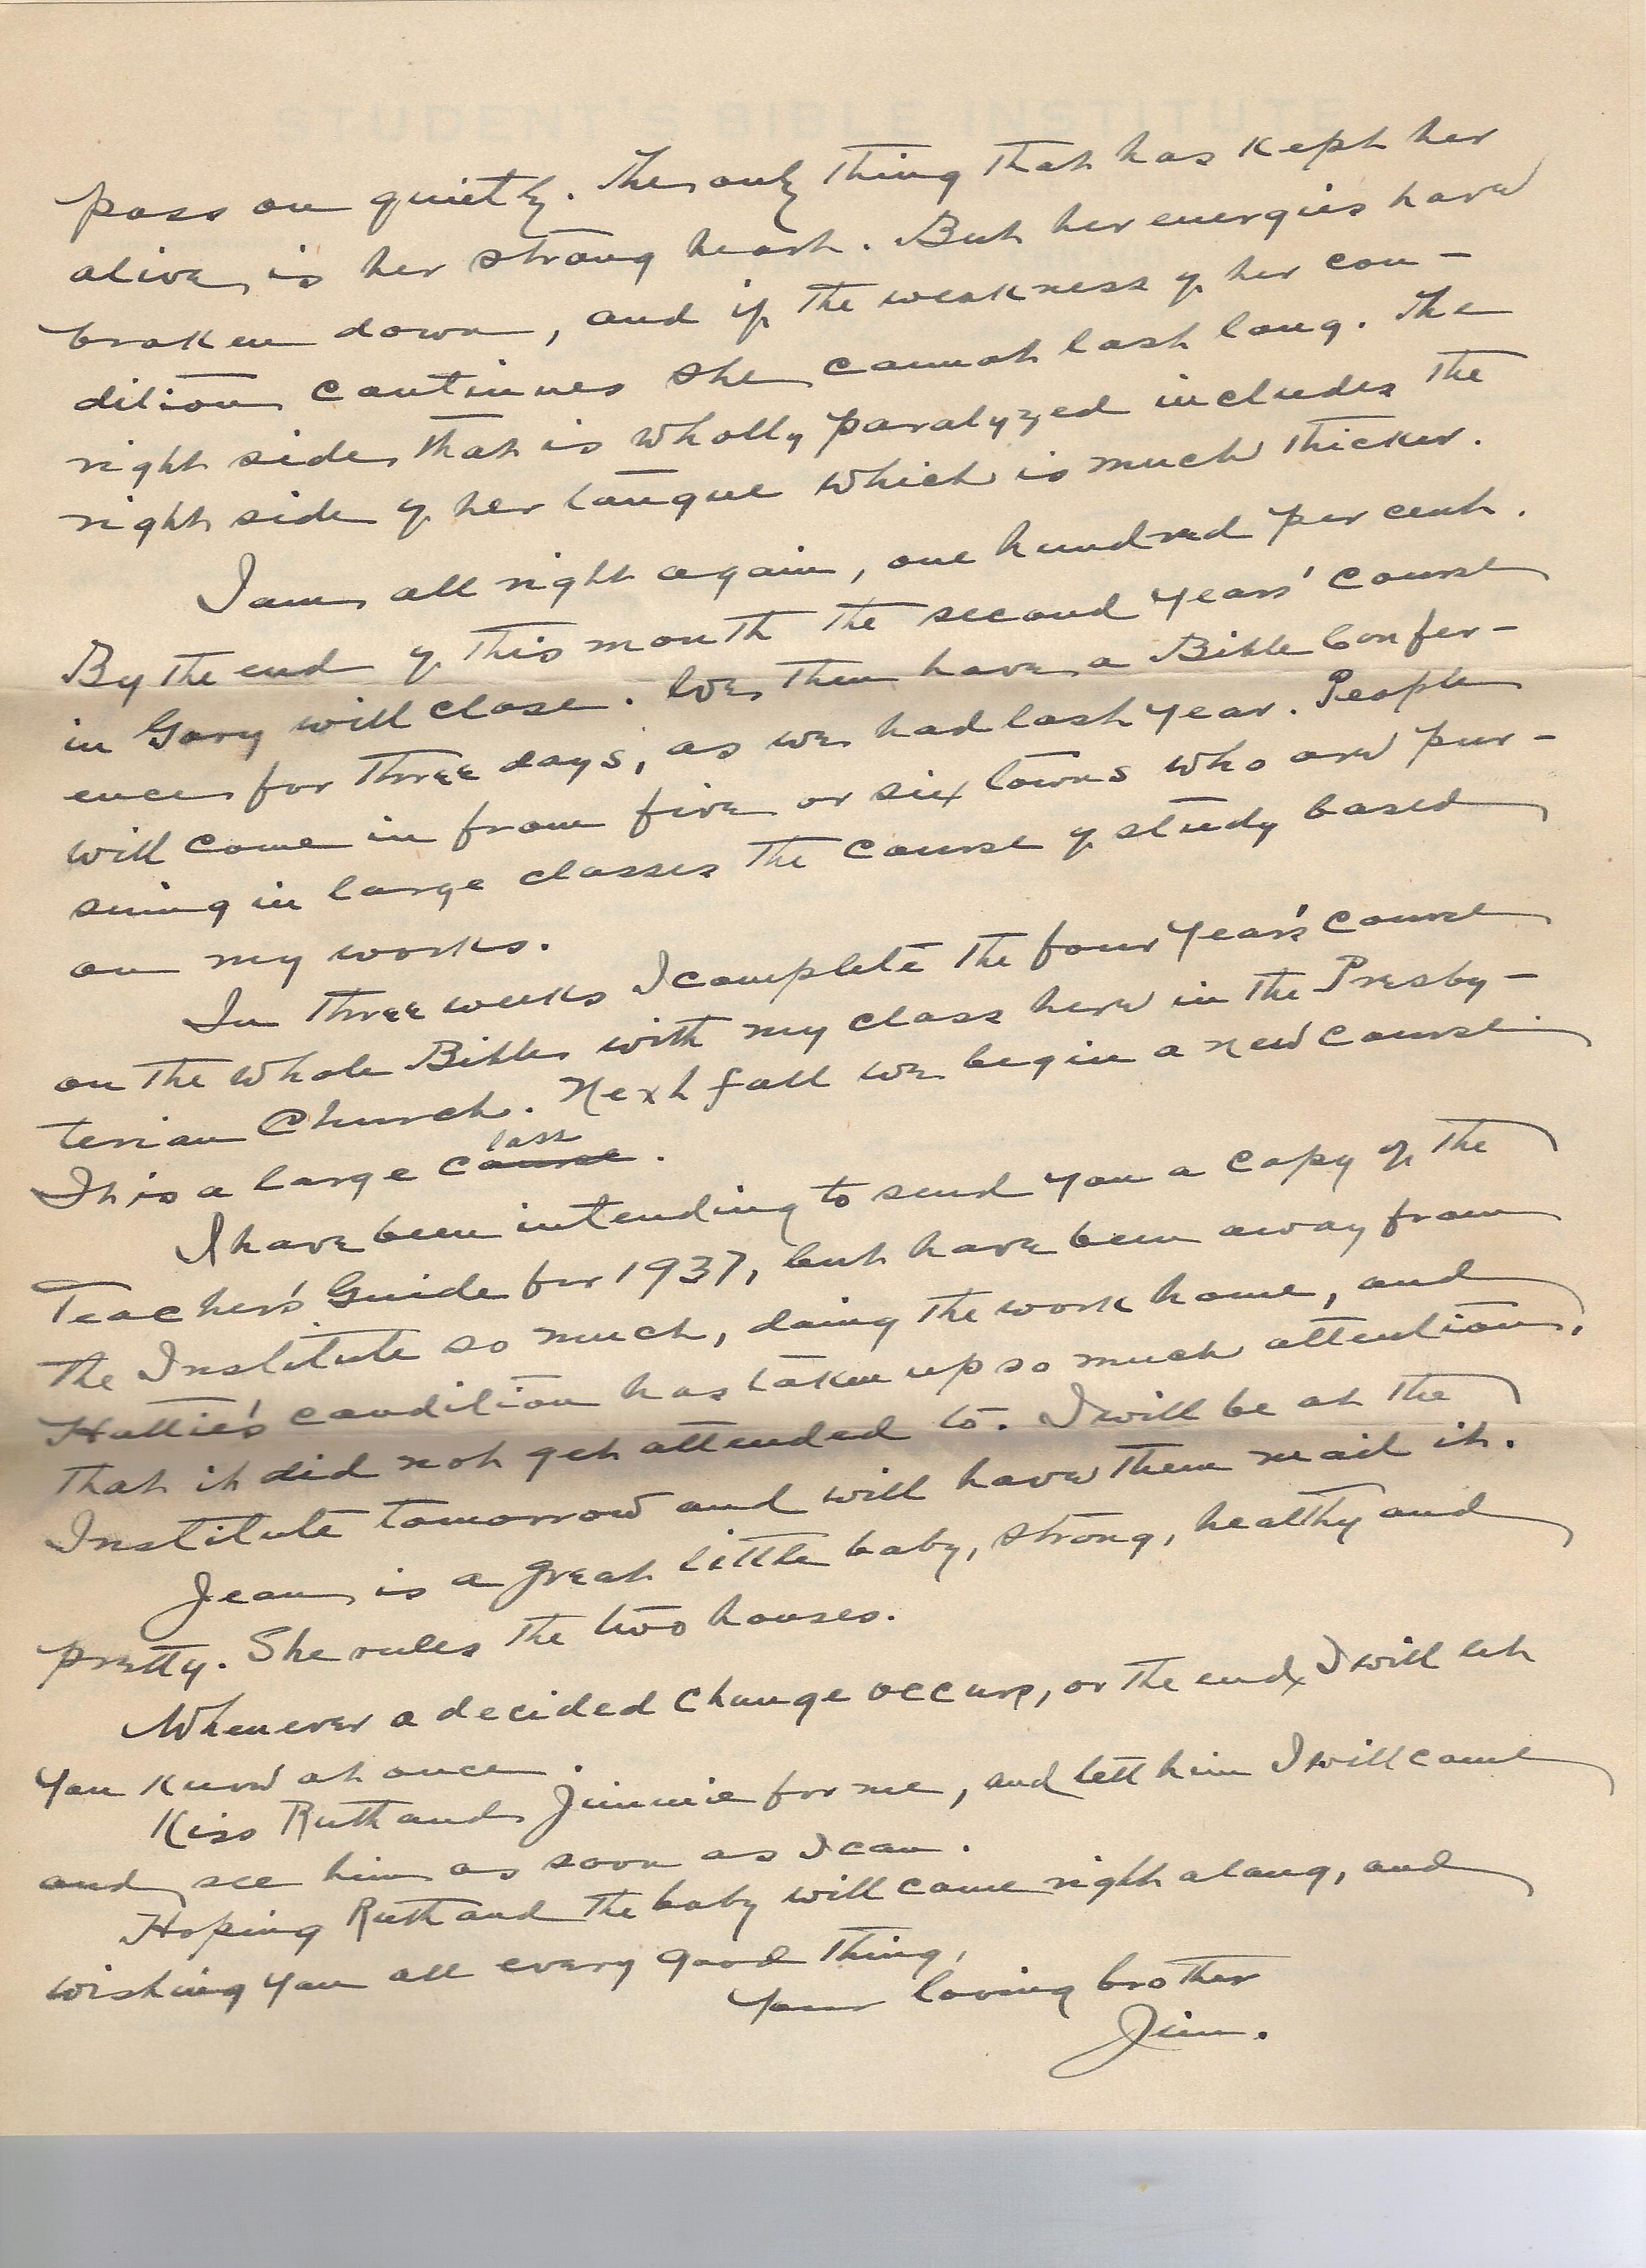 STUDENT'S BIBLE INSTITUTE
pass on quietly. The only thing that has kept her
alive is her strong heart. But her energies have
broken down, and if the weakness of her con-
dition continues she cannot last long. The
right side that is wholly paralyzed includes the
right side of her tongue which is much thicker.
I am all right again, one hundred per cent.
By the end of this month the second years' course
in Gary will close. We then have a Bible Confer-
ence for three days, as we had last year. People
will come in from five or six towns who are pur-
suing in large classes the course of study based
on my works.
In three weeks I complete the four year's course
on the whole Bible with my class here in the Presby-
terian Church. Next fall we begin a new course.
lass
It is a large course.
I have been intending to send you a copy of the
Teacher's Guide for 1937, but have been away from
the Institute so much, doing the work home, and
Hattie's condition has taken up so much attention,
that it did not get attended to. I will be at the
Institute tomorrow and will have them mail it.
Jean is a great little baby, strong, healthy and
pretty. She rules the two houses.
Whenever a decided change occurs, or the end, I will let
you know at once.
Kiss Ruth and Jimmie for me, and tell him I will come
and see him as soon as I can.
Hoping Ruth and the baby will come right along, and
wishing you all every good thing,
Your loving brother
Jim.